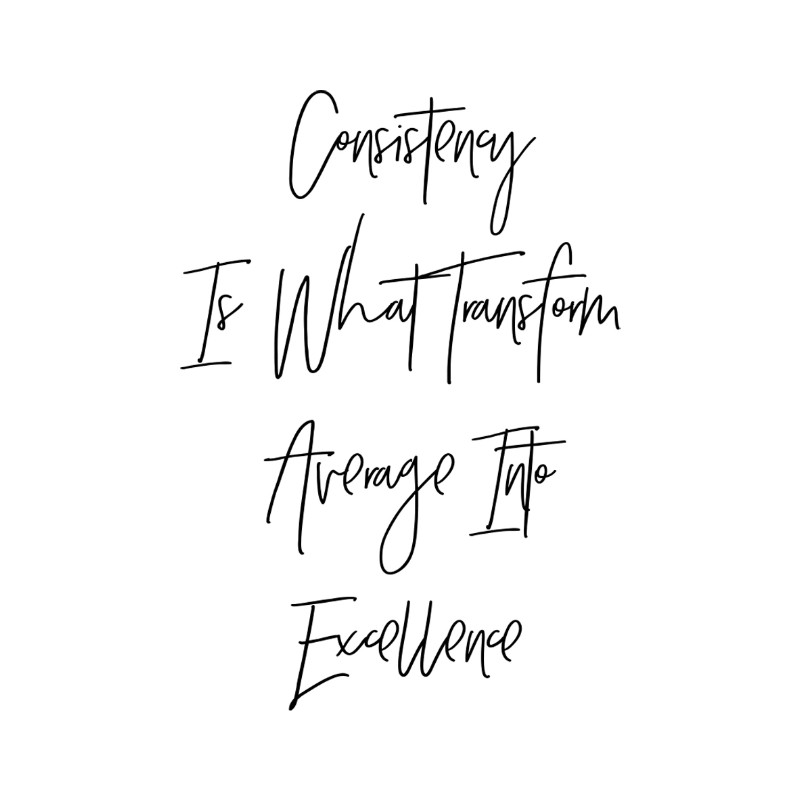 Consistency
Is What Transform
Average Into
Excellence